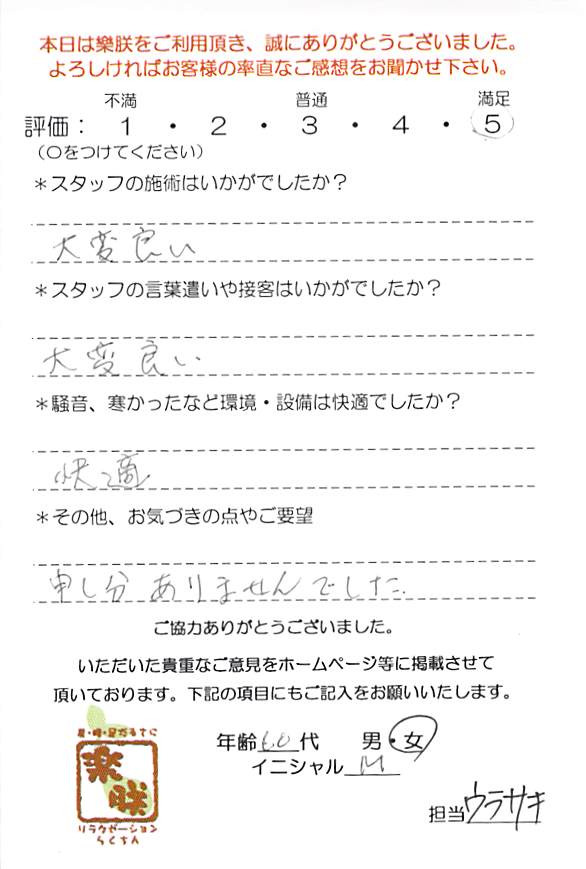 本日は樂朕をご利用頂き、誠にありがとうございました。
よろしければお客様の率直なご感想をお聞かせ下さい。
不満 普通 満足
評価： 1 ・ 2 ・ 3 ・ 4 ・ 5
（○をつけてください）
＊スタッフの施術はいかがでしたか？
大変良い
＊スタッフの言葉遣いや接客はいかがでしたか？
大変良い
＊騒音、寒かったなど環境・設備は快適でしたか？
快適
＊その他、お気づきの点やご要望
申し分ありませんでした.
ご協力ありがとうございました。
いただいた貴重なご意見をホームページ等に掲載させて
頂いております。下記の項目にもご記入をお願いいたします。
年齢60代 男・女
イニシャル M
担当ウラサキ
楽朕
リラクゼーション
らくちん